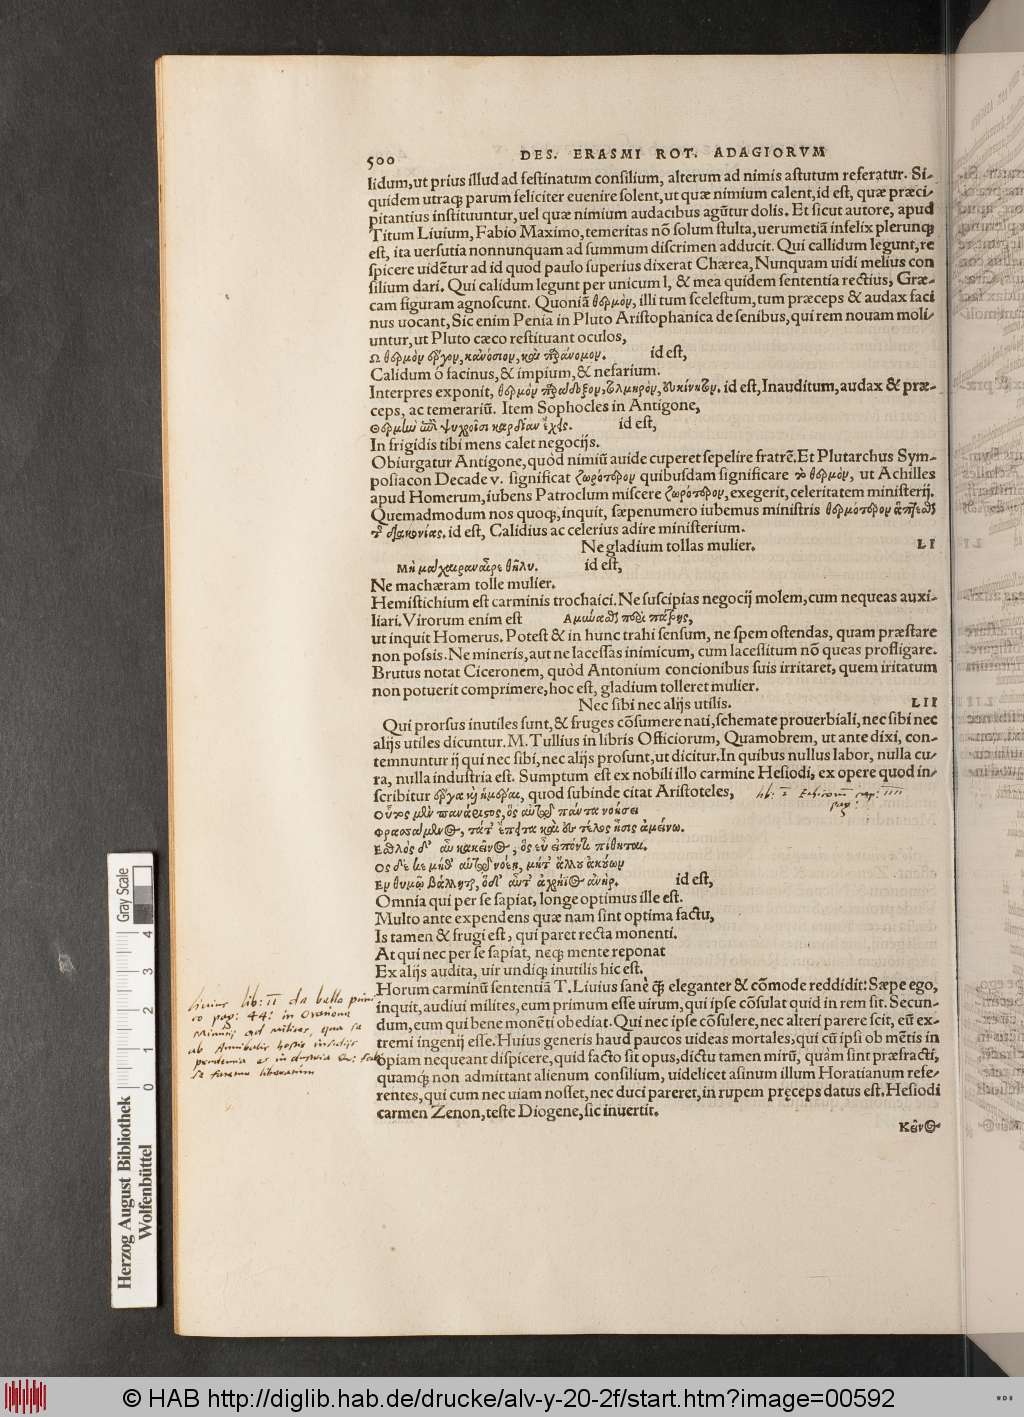 500 DES. ERASMI ROT. ADAGIORVM
lidum, ut prius illud ad festinatum consilium, alterum ad nimis astutum referatur. Si-
quidem utraq; parum feliciter euenire solent, ut quæ nimium calent, id est, quæ præci-
pitantius instituuntur, uel quæ nimium audacibus agũtur dolis. Et sicut autore, apud
Titum Liuium, Fabio Maximo, temeritas nõ solum stulta, uerumetiã infelix plerunq;
est, ita uersutia nonnunquam ad summum discrimen adducit. Qui callidum legunt, re
spicere uidẽtur ad id quod paulo superius dixerat Chærea, Nunquam uidi melius con
silium dari. Qui calidum legunt per unicum l, & mea quidem sententia rectius, Græ-
cam figuram agnoscunt. Quoniã θερμὸν, illi tum scelestum, tum præceps & audax faci
nus uocant, Sic enim Penia in Pluto Aristophanica de senibus, qui rem nouam moli-
untur, ut Pluto cæco restituant oculos,
Ω θερμὸν ἔργον, κἀνόσιον, καὶ παράνομον. id est,
Calidum ô facinus, & impium, & nefarium.
Interpres exponit, θερμὸν παράδοξον, τολμηρὸν, εὐκίνητον. id est, Inauditum, audax & præ-
ceps, ac temerariũ. Item Sophocles in Antigone,
Θερμὴν ἐπὶ ψυχροῖσι καρδίαν ἔχεις. id est,
In frigidis tibi mens calet negocijs.
Obiurgatur Antigone, quòd nimiũ auide cuperet sepelire fratrẽ. Et Plutarchus Sym-
posiacon Decade v. significat ζωρότερον quibusdam significare τὸ θερμὸν, ut Achilles
apud Homerum, iubens Patroclum miscere ζωρότερον, exegerit, celeritatem ministerij.
Quemadmodum nos quoq;, inquit, sæpenumero iubemus ministris θερμότερον ἅπτεσθαι
τῆς διακονίας. id est, Calidius ac celerius adire ministerium.
Ne gladium tollas mulier. LI
Μὴ μάχαιραν αἶρε θῆλυ. id est,
Ne machæram tolle mulier.
Hemistichium est carminis trochaici. Ne suscipias negocij molem, cum nequeas auxi-
liari. Virorum enim est Ἀμύνεσθαι περὶ πάτρης,
ut inquit Homerus. Potest & in hunc trahi sensum, ne spem ostendas, quam præstare
non possis. Ne mineris, aut ne lacessas inimicum, cum lacessitum nõ queas profligare.
Brutus notat Ciceronem, quòd Antonium concionibus suis irritaret, quem irritatum
non potuerit comprimere, hoc est, gladium tolleret mulier.
Nec sibi nec alijs utilis. LII
Qui prorsus inutiles sunt, & fruges cõsumere nati, schemate prouerbiali, nec sibi nec
alijs utiles dicuntur. M. Tullius in libris Officiorum, Quamobrem, ut ante dixi, con-
temnuntur ij qui nec sibi, nec alijs prosunt, ut dicitur. In quibus nullus labor, nulla cu-
ra, nulla industria est. Sumptum est ex nobili illo carmine Hesiodi, ex opere quod in-
scribitur ἔργα καὶ ἡμέραι, quod subinde citat Aristoteles,
lib: I Ethicorum cap: IIII
Οὗτος μὲν πανάριστος, ὃς αὐτῷ πάντα νοήσει
Φρασσάμενος, τά τ' ἔπειτα καὶ ἐς τέλος ᾖσιν ἀμείνω.
Ἐσθλὸς δ' αὖ κἀκεῖνος, ὃς εὖ εἰπόντι πίθηται.
Ὃς δέ κε μήθ' αὑτῷ νοέῃ, μήτ' ἄλλου ἀκούων
Ἐν θυμῷ βάλληται, ὅδ' αὖτ' ἀχρήϊος ἀνήρ. id est,
Omnia qui per se sapiat, longe optimus ille est.
Multo ante expendens quæ nam sint optima factu,
Is tamen & frugi est, qui paret recta monenti.
At qui nec per se sapiat, neq; mente reponat
Ex alijs audita, uir undiq; inutilis hic est.
Horum carminũ sententiã T. Liuius sanè q̃ eleganter & cõmode reddidit: Sæpe ego,
inquit, audiui milites, eum primum esse uirum, qui ipse cõsulat quid in rem sit. Secun-
dum, eum qui bene monẽti obediat. Qui nec ipse cõsulere, nec alteri parere scit, eũ ex-
tremi ingenij esse. Huius generis haud paucos uideas mortales, qui cũ ipsi ob mẽtis in
opiam nequeant dispicere, quid facto sit opus, dictu tamen mirũ, quàm sint præfracti,
quamq́; non admittant alienum consilium, uidelicet asinum illum Horatianum refe-
rentes, qui cum nec uiam nosset, nec duci pareret, in rupem pręceps datus est. Hesiodi
carmen Zenon, teste Diogene, sic inuertit.
Κεῖνος
Liuius lib: II da bello puni
co pag: 44: in Oratione
Minutij ad milites,
ab Annibalis hostis insidijs
se
liberatum
Herzog August Bibliothek
Wolfenbüttel
Gray Scale
0 1 2 3 4
© HAB http://diglib.hab.de/drucke/alv-y-20-2f/start.htm?image=00592